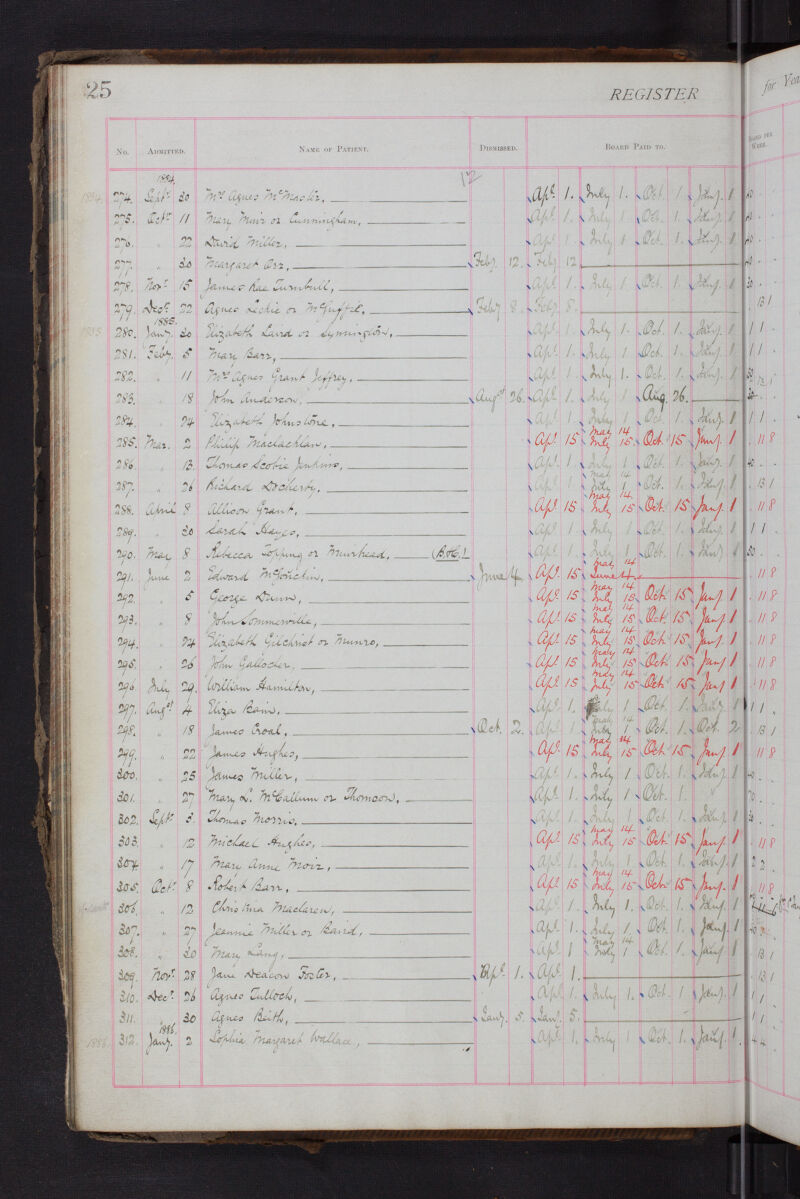 25 REGISTER for Yea
No. ADMITTED. NAME OF PATIENT. DISMISSED. BOARD PAID TO. BOARD PER WEEK.
1884. 12
1884. 274. Septr 30 Mrs Agnes McMaster, Apl. 1. July 1. Oct. 1. Jany. 1 40
275. Octr 11 Mary Muir or Cunningham, Apl. 1. July 1. Oct. 1. Jany. 1 40
276. " 22 David Miller, Apl. 1. July 1. Oct. 1. Jany. 1 40
277. " 30 Margaret Orr, Feby. 12. Feby 12 40
278. Novr 15 James Rae Turnbull, Apl. 1. July 1. Oct. 1. Jany. 1 30
279. Decr 22 Agnes Leckie or McGuffie, Feby 8. Feby. 8. 13/
1885.
1885 280. Jany. 30 Elizabeth Laird or Symington, Apl. 1. July 1. Oct. 1. Jany. 1 11
281. Feby. 5 Mary Barr, Apl. 1. July 1. Oct. 1. Jany. 1 11
282. " 11 Mrs Agnes Grant Jeffrey, Apl. 1. July 1. Oct. 1. Jany. 1 50
283. " 18 John Anderson, Augst 26. Apl. 1. July 1 Aug. 26. 30
284. " 24 Elizabeth Johnstone, Apl. 1. July 1. Oct. 1. Jany. 1 11
May 14
285. Mar. 2 Philip Maclachlan, Apl. 15 July 15. Oct. 15 Jany. 1 11 8
286. " 13. Thomas Scobie Jenkins, Apl. 1. July 1. Oct. 1. Jany. 1 40
May 14
287. " 26 Richard Docherty, Apl. 1. July 1. Oct. 1. Jany. 1 13/
May 14
288. April 8 Allison Grant, Apl. 15 July 15 Oct. 15 Jany. 1 11 8
289. " 30 Sarah Hayes, Apl. 1. July 1. Oct. 1. Jany. 1 11
290. May 8 Rebecca Topping or Muirhead, Apl. 1. July 1. Oct. 1. Jany. 1 50
May 14
291. June 2 Edward June 4 Apl. 15 June 4 11 8
May 14
292. " 5 George Dunn, Apl. 15 July 15 Oct. 15 Jany 1 11 8
May 14
293. " 8 John Sommerville, Apl. 15 July 15 Oct. 15 Jany 1 11 8
May 14
294. " 24 Elizabeth Gilchrist or Munro, Apl. 15 July 15 Oct. 15 Jany. 1 11 8
May 14
295. " 26 John Gallocher, Apl. 15 July 15 Oct. 15 Jany 1 11 8
May 14
296. July 29. William Hamilton, Apl. 15 July 15 Oct. 15 Jany 1 11 8
297. Augst 4 Eliza Bain, Apl. 1. July 1 Oct. 1. Jany. 1 11
May 14
298. " 18 James Croal, Oct. 2. Apl. 1 July 1 Oct. 1. Oct. 2 13/
May 14
299. " 22 James Hughes, Apl. 15 July 15 Oct. 15 Jany. 1 11 8
300. " 25 James Miller, Apl. 1. July 1 Oct. 1. Jany. 1 40
301. " 27 Mary L. McCallum or Thomson, Apl. 1. July 1 Oct. 1. 70
302. Septr 3. Thomas Morris, Apl. 1. July 1 Oct. 1. Jany. 1 30
May 14
303. " 12 Michael Hughes, Apl. 15 July 15 Oct. 15 Jany. 1 11 8
304 " 17 Mary Anne Moir, Apl. 1. July 1. Oct. 1. Jany. 1 22
May 14
305. Octr 8 Robert Barr, Apl. 15 July 15 Oct. 15 Jany. 1 11 8
306. " 12 Christina Maclaren, Apl. 1. July 1. Oct. 1. Jany. 1
307. " 27 Jeannie Miller or Baird, Apl. 1. July 1. Oct. 1. Jany. 1
May 14
308. " 30 Mary Lang, Apl. 1 July 1 Oct. 1. Jany. 1 13/
309. Novr 28 Jane Deacon Foster, Apl. 1. Apl. 1. 13/
310. Decr 26 Agnes Tulloch, Apl. 1. July 1. Oct. 1 Jany. 1 11
311. 30 Agnes Beith, Jany. 5. Jany. 5. 11
1886.
1886. 312. Jany. 2 Sophia Margaret Wallace, Apl. 1. July 1 Oct. 1. Jany. 1. 44